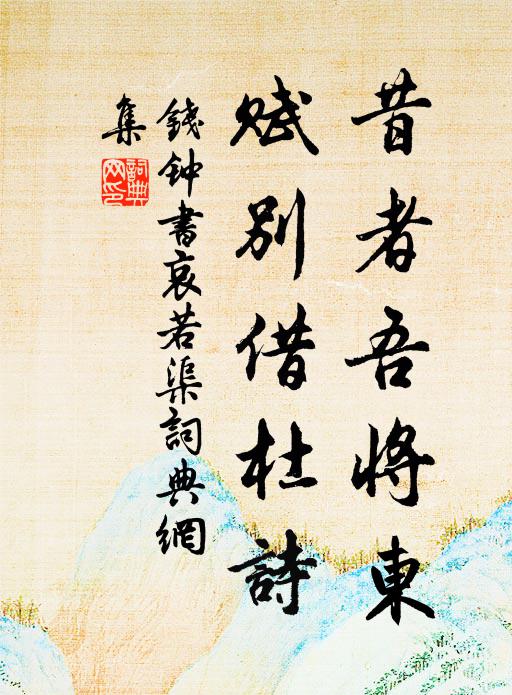 昔者吾将東
賦别借杜詩
錢钟書哀若渠詞典網
集
詞典网印